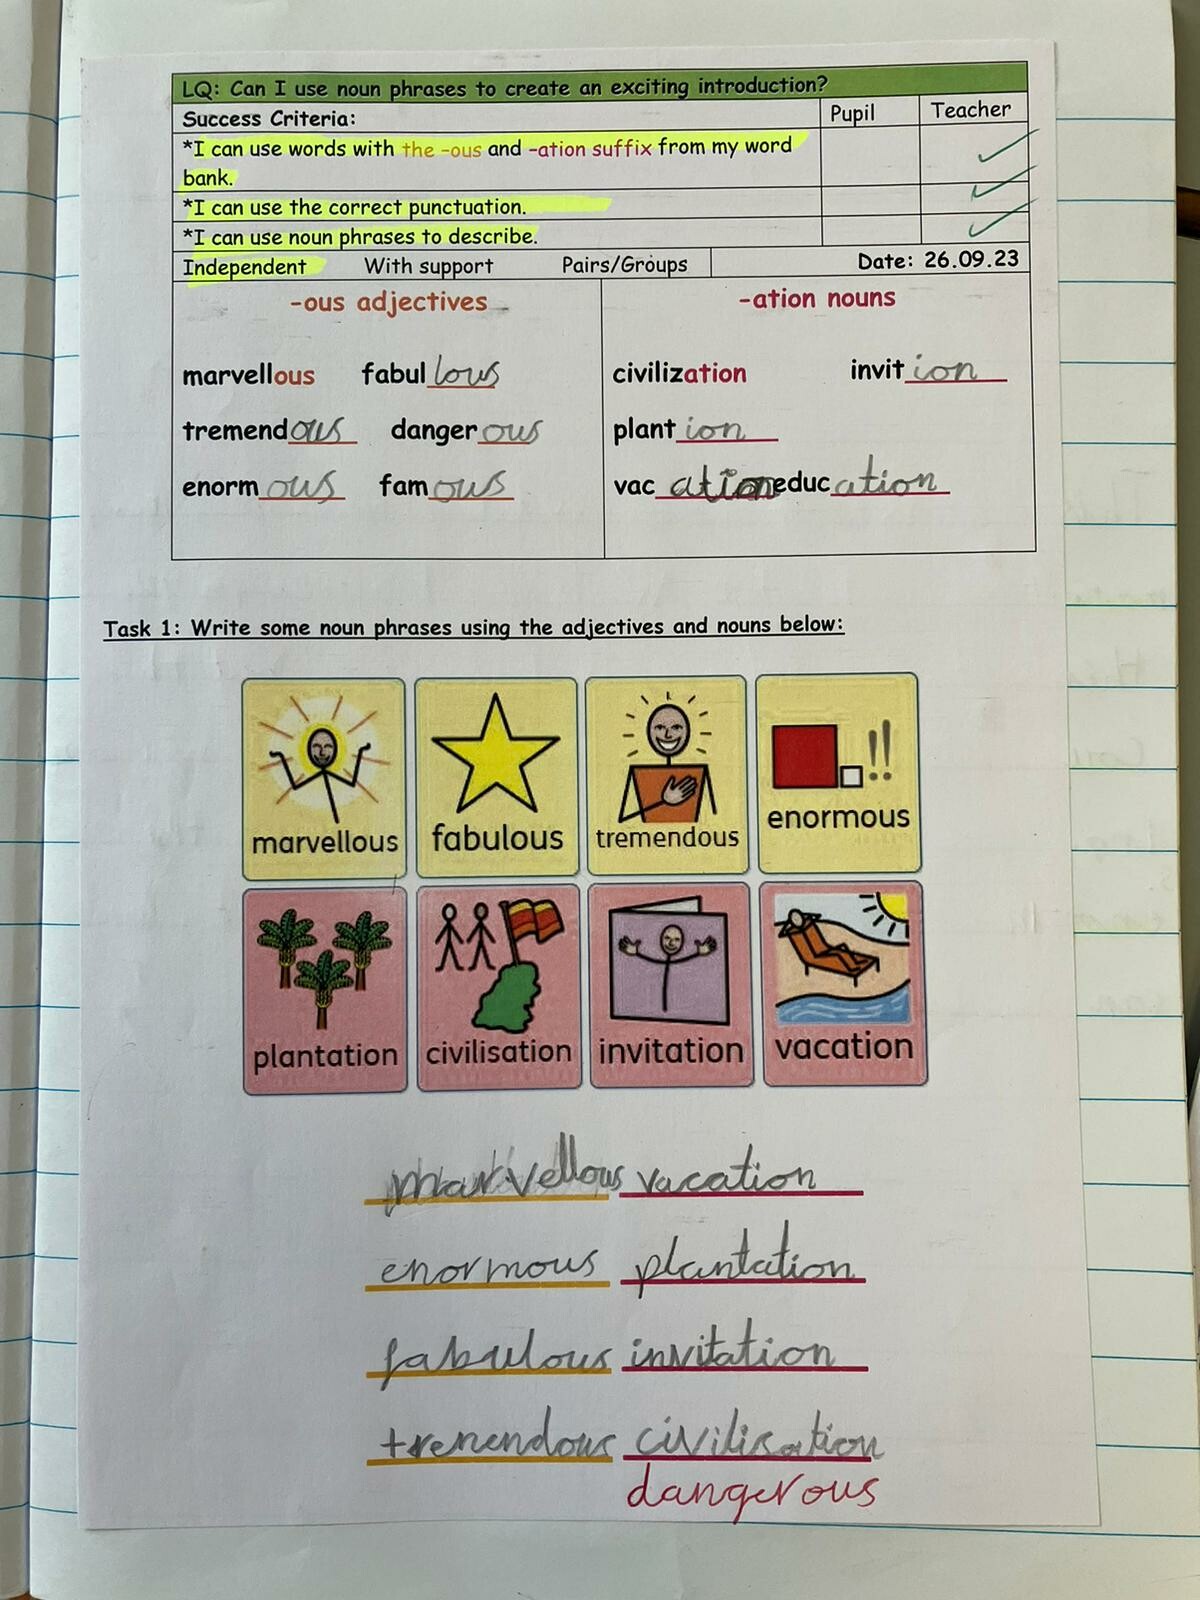 LQ: Can I use noun phrases to create an exciting introduction?
Success Criteria: Pupil Teacher
*I can use words with the -ous and -ation suffix from my word
bank.
*I can use the correct punctuation.
*I can use noun phrases to describe.
Independent With support Pairs/Groups Date: 26.09.23
-ous adjectives -ation nouns
marvellous fabullous civilization invition
tremendous dangerous plantion
enormous famous vacation education
Task 1: Write some noun phrases using the adjectives and nouns below:
marvellous fabulous tremendous enormous
plantation civilisation invitation vacation
marvellous vacation
enormous plantation
fabulous invitation
trenendous civilisation
dangerous